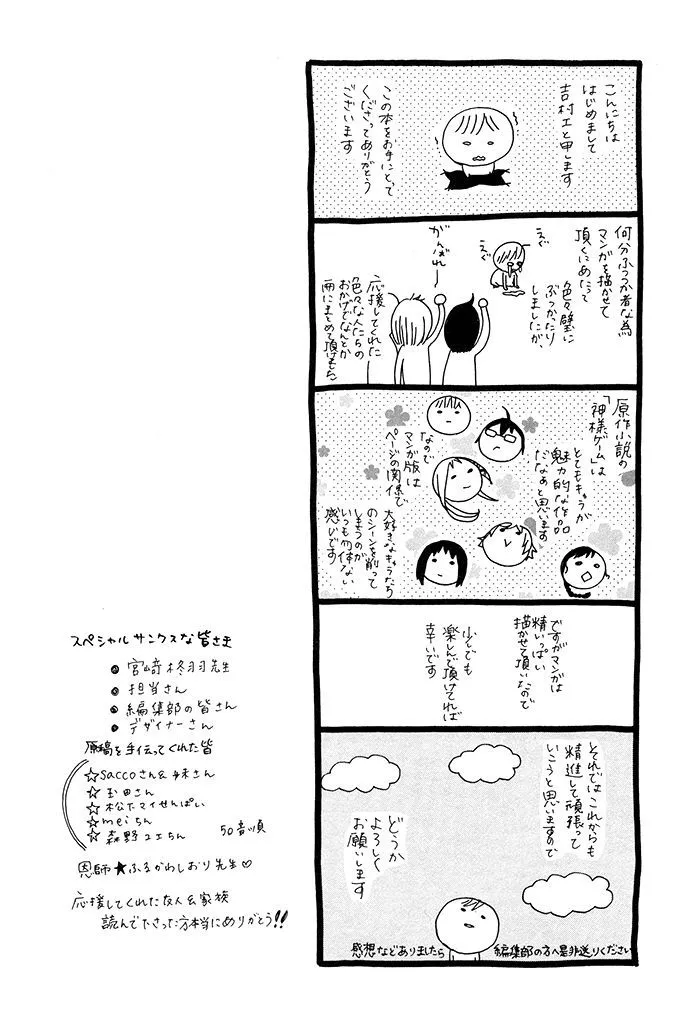 こんにちは
はじめまして
吉村エと申します
この本をお手にとって
くださってありがとう
ございます
何分ふつつか者な為
マンガを描かせて
頂くにあたって
色々壁に
ぶつかったり
しましたが、
えぐ
えぐ
がんばれー
応援してくれた
色々な人たちの
おかげでなんとか
一冊にまとめて頂けました
原作小説の
「神様ゲーム」は
とてもキャラが
魅力的な作品
だなぁと思います
なので
マンガ版は
ページの関係で
大好きなキャラたち
のシーンを削って
しまうのが
いつも勿体ない
感じです
ですがマンガは
精いっぱい
描かせて頂いたので
少しでも
楽しんで頂ければ
幸いです
それではこれからも
精進して頑張って
いこうと思いますので
どうか
よろしく
お願いします
感想などありましたら 編集部の方へ是非送りください
スペシャルサンクスな皆さま
● 宮﨑柊羽先生
● 担当さん
● 編集部の皆さん
● デザイナーさん
原稿を手伝ってくれた皆
☆saccoさん&妹さん
☆玉田さん
☆松下マイせんぱい
☆meiちん
☆森野ユエちん 50音順
恩師★ふるかわしおり先生♡
応援してくれた友人&家族
読んで下さった方本当にありがとう!!